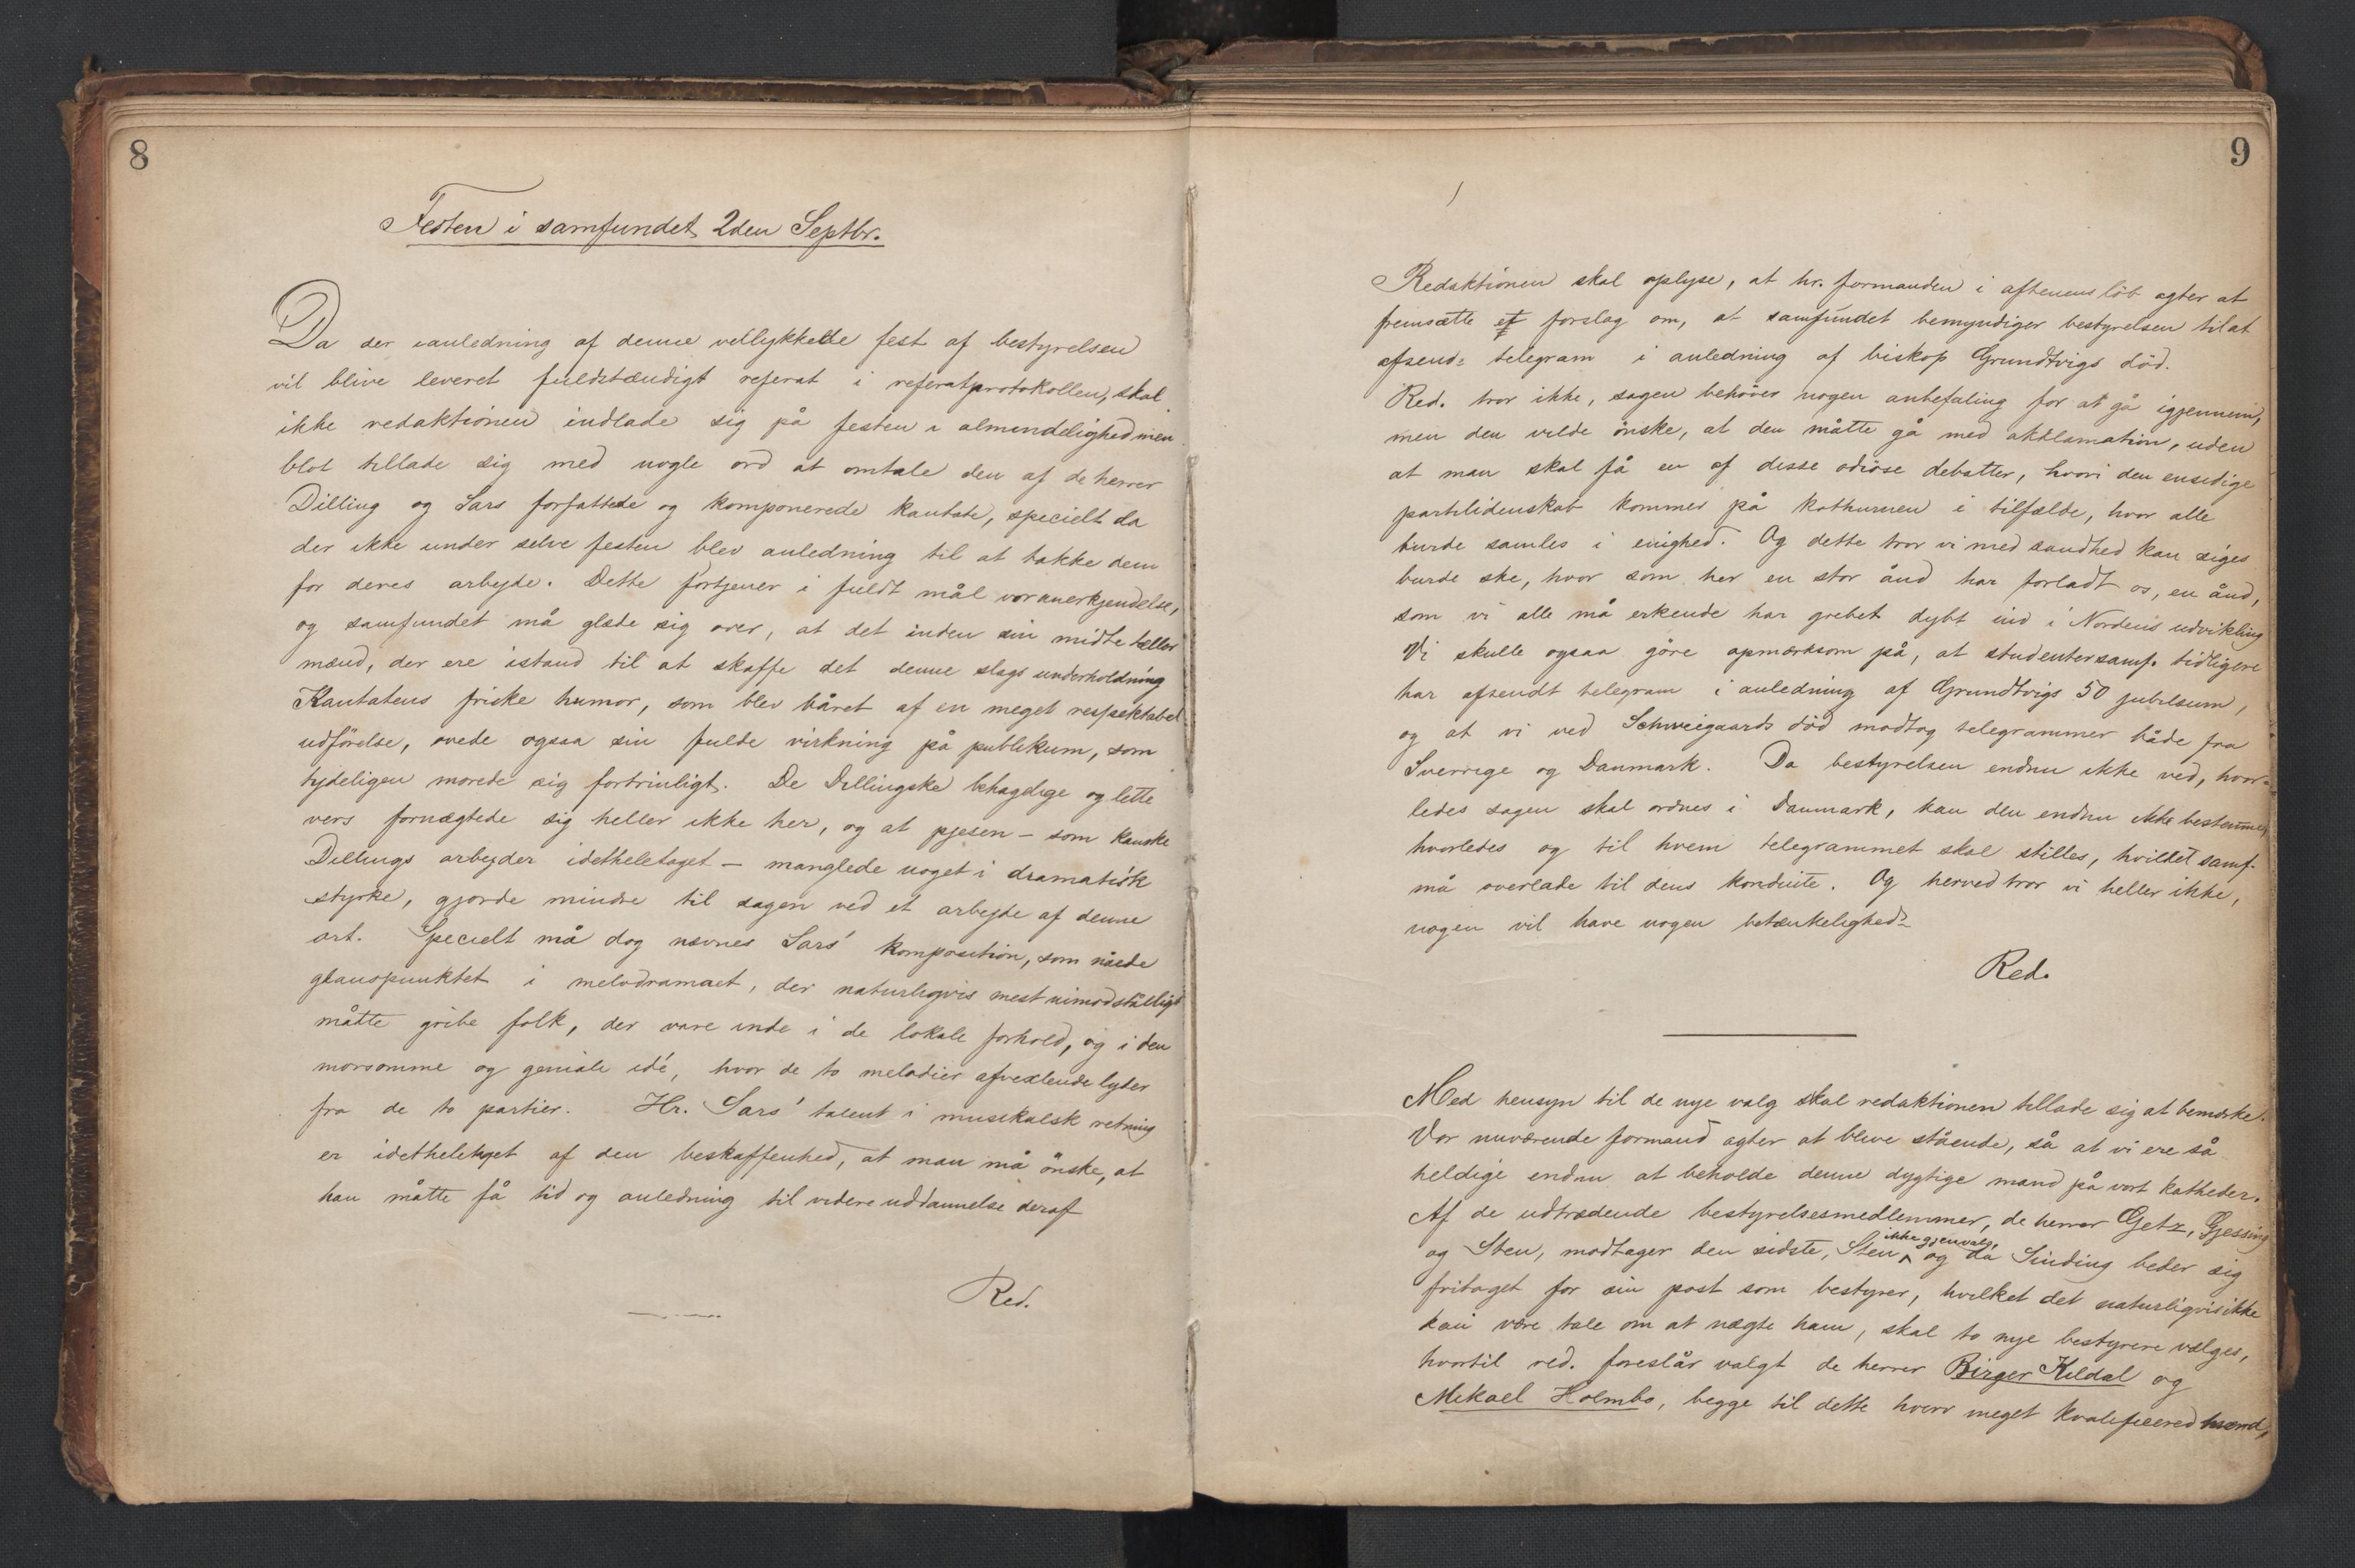 8
Festen i samfundet 2den Septbr.
Da der ianledning af denne vellykkede fest af bestyrelsen
vil blive leveret fuldstændigt referat i referatprotokollen, skal
ikke redaktionen indlade sig på festen i almindelighed men
blot tillade sig med nogle ord at omtale den af de herrer
Dilling og Sars forfattede og komponerede kantate, specielt da
der ikke under selve festen blev anledning til at takke dem
for deres arbejde. Dette fortjener i fuldt mål vor anerkjendelse,
og samfundet må glæde sig over, at det inden sin midte tæller
mænd, der ere istand til at skaffe det denne slags underholdning
Kantatens friske humor, som blev båret af en meget respektabel
udförelse, øvede ogsaa sin fulde virkning på publikum, som
tydeligen morede sig fortrinligt. De Dillingske behagelige og lette
vers fornægtede sig heller ikke her, og at pjesen – som kanske
Dillings arbejder idetheletaget – manglede noget i dramatisk
styrke, gjorde mindre til sagen ved et arbejde af denne
art. Specielt må dog nævnes Sars' komposition, som nåede
glanspunktet i melodramaet, der naturligvis mest uimodståeligt
måtte gribe folk, der vare inde i de lokale forhold, og i den
morsomme og geniale idé, hvor de to melodier afvexlende lyder
fra de to partier. Hr. Sars' talent i musikalsk retning
er idetheletaget af den beskaffenhed, at man må önske, at
han måtte få tid og anledning til videre uddannelse deraf
Red.
9
Redaktionen skal oplyse, at hr. formanden i aftenens löb agter at
fremsætte et forslag om, at samfundet bemyndiger bestyrelsen til at
afsende telegram i anledning af biskop Grundtvigs död.
Red. tror ikke, sagen behöver nogen anbefaling for at gå igjennem,
men den vilde önske, at den måtte gå med akklamation, uden
at man skal få en af disse odiöse debatter, hvori den ensidige
partilidenskab kommer på kothurnen i tilfælde, hvor alle
burde samles i enighed. Og dette tror vi med sandhed kan siges
burde ske, hvor som her en stor ånd har forladt os, en ånd,
som vi alle må erkende har grebet dybt ind i Nordens udvikling
Vi skulle ogsaa göre opmærksom på, at studentersamf. tidligere
har afsendt telegram i anledning af Grundtvigs 50 jubilæum,
og at vi ved Schweigaards död modtog telegrammer både fra
Sverrige og Danmark. Da bestyrelsen endnu ikke ved, hvor-
ledes sagen skal ordnes i Danmark, kan den endnu ikke bestemme,
hvorledes og til hvem telegrammet skal stilles, hvilket samf.
må overlade til dens konduite. Og herved tror vi heller ikke,
nogen vil have nogen betænkelighed.
Red.
Med hensyn til de nye valg skal redaktionen tillade sig at bemærke:
Vor nuværende formand agter at blive stående, så at vi ere så
heldige endnu at beholde denne dygtige mand på vort katheder.
Af de udtrædende bestyrelsesmedlemmer, de herrer Getz, Gjessing
og Sten, modtager den sidste, Sten ikke gjenvalg, og da Sinding beder sig
fritaget for sin post som bestyrer, hvilket det naturligvis ikke
kan være tale om at nægte ham, skal to nye bestyrere vælges,
hvortil red. foreslår valgt de herrer Birger Kildal og
Mikael Holmbo, begge til dette hverv meget kvalificered mænd,